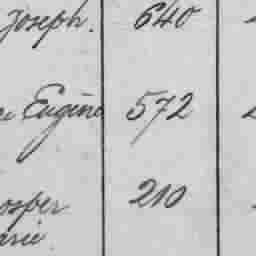 Joseph. 640
Eugène 572
osper 210
arie